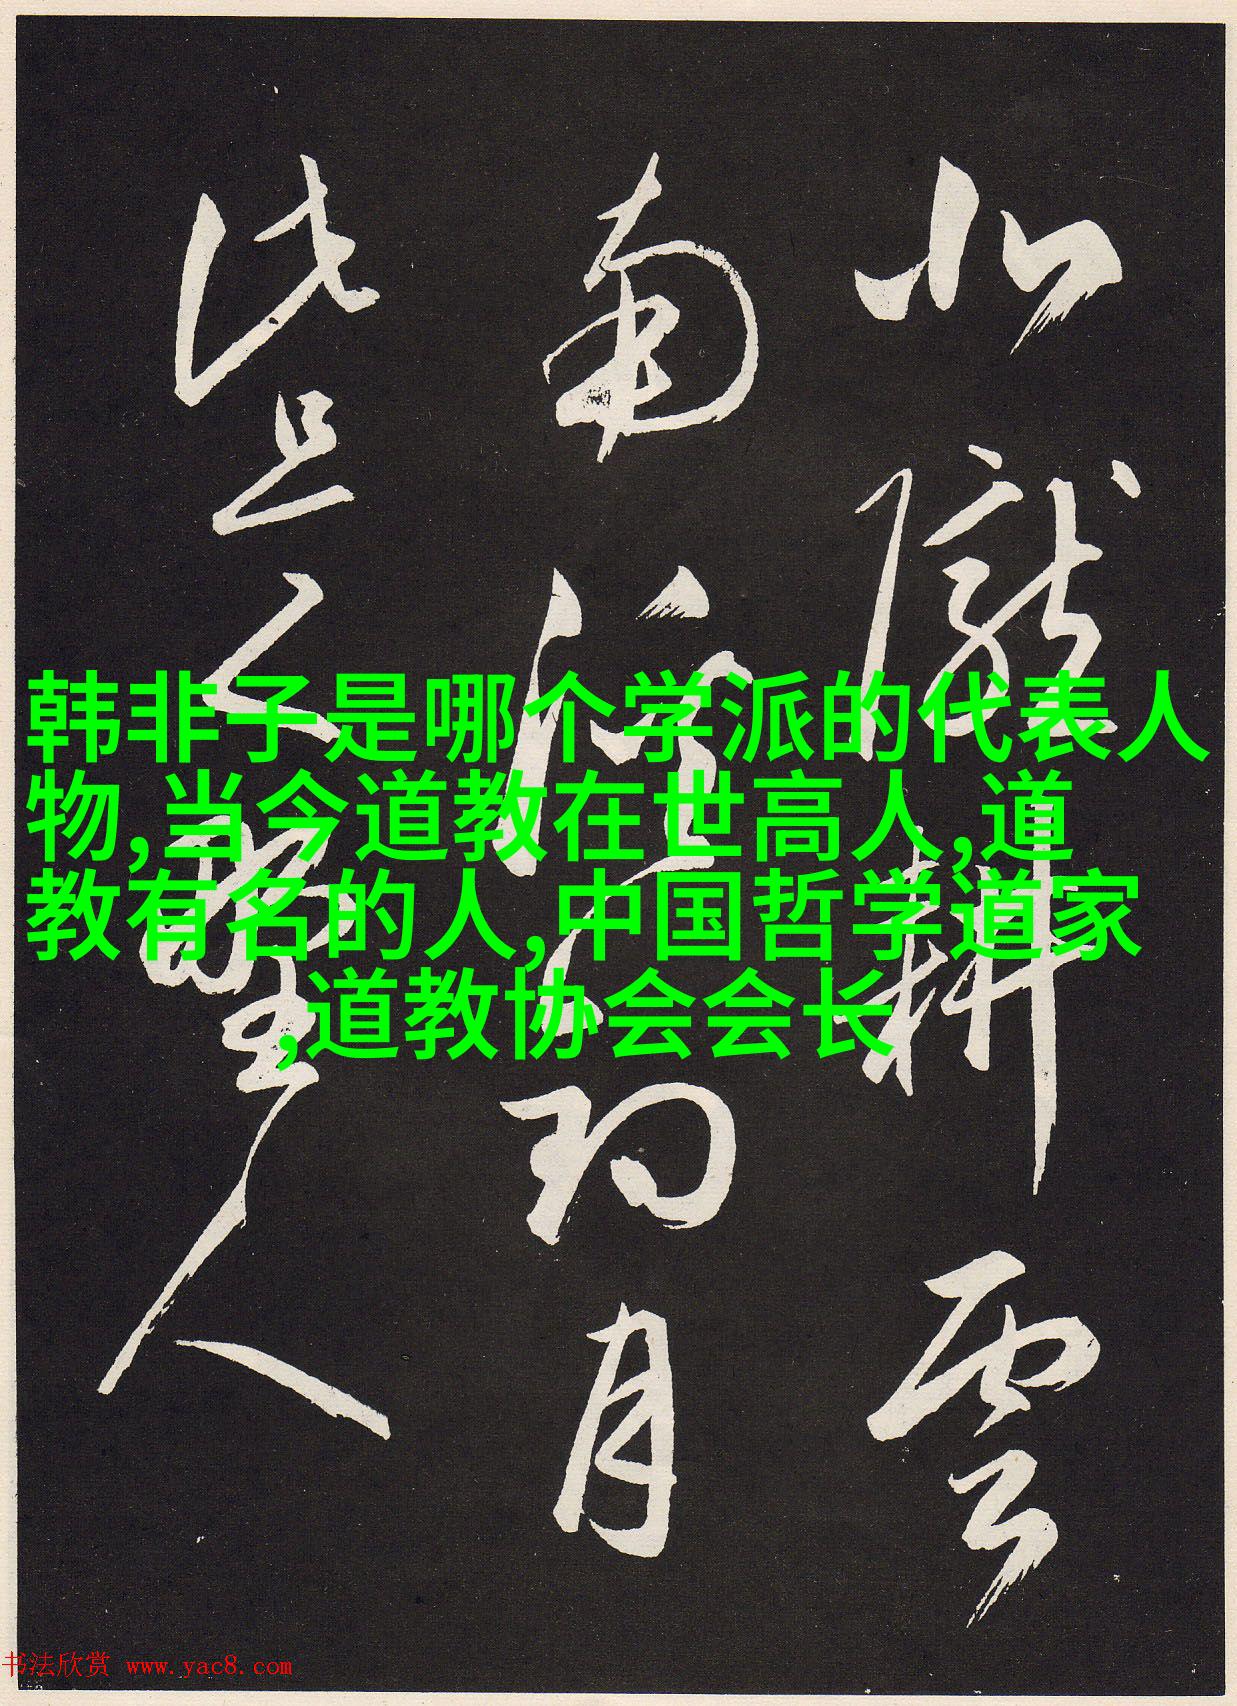 北隴耕雲
南溪釣月
此是野人
韩非子是哪个学派的代表人
物,当今道教在世高人,道
教有名的人,中国哲学道家
,道教协会会长
书法欣赏 www.yac8.com